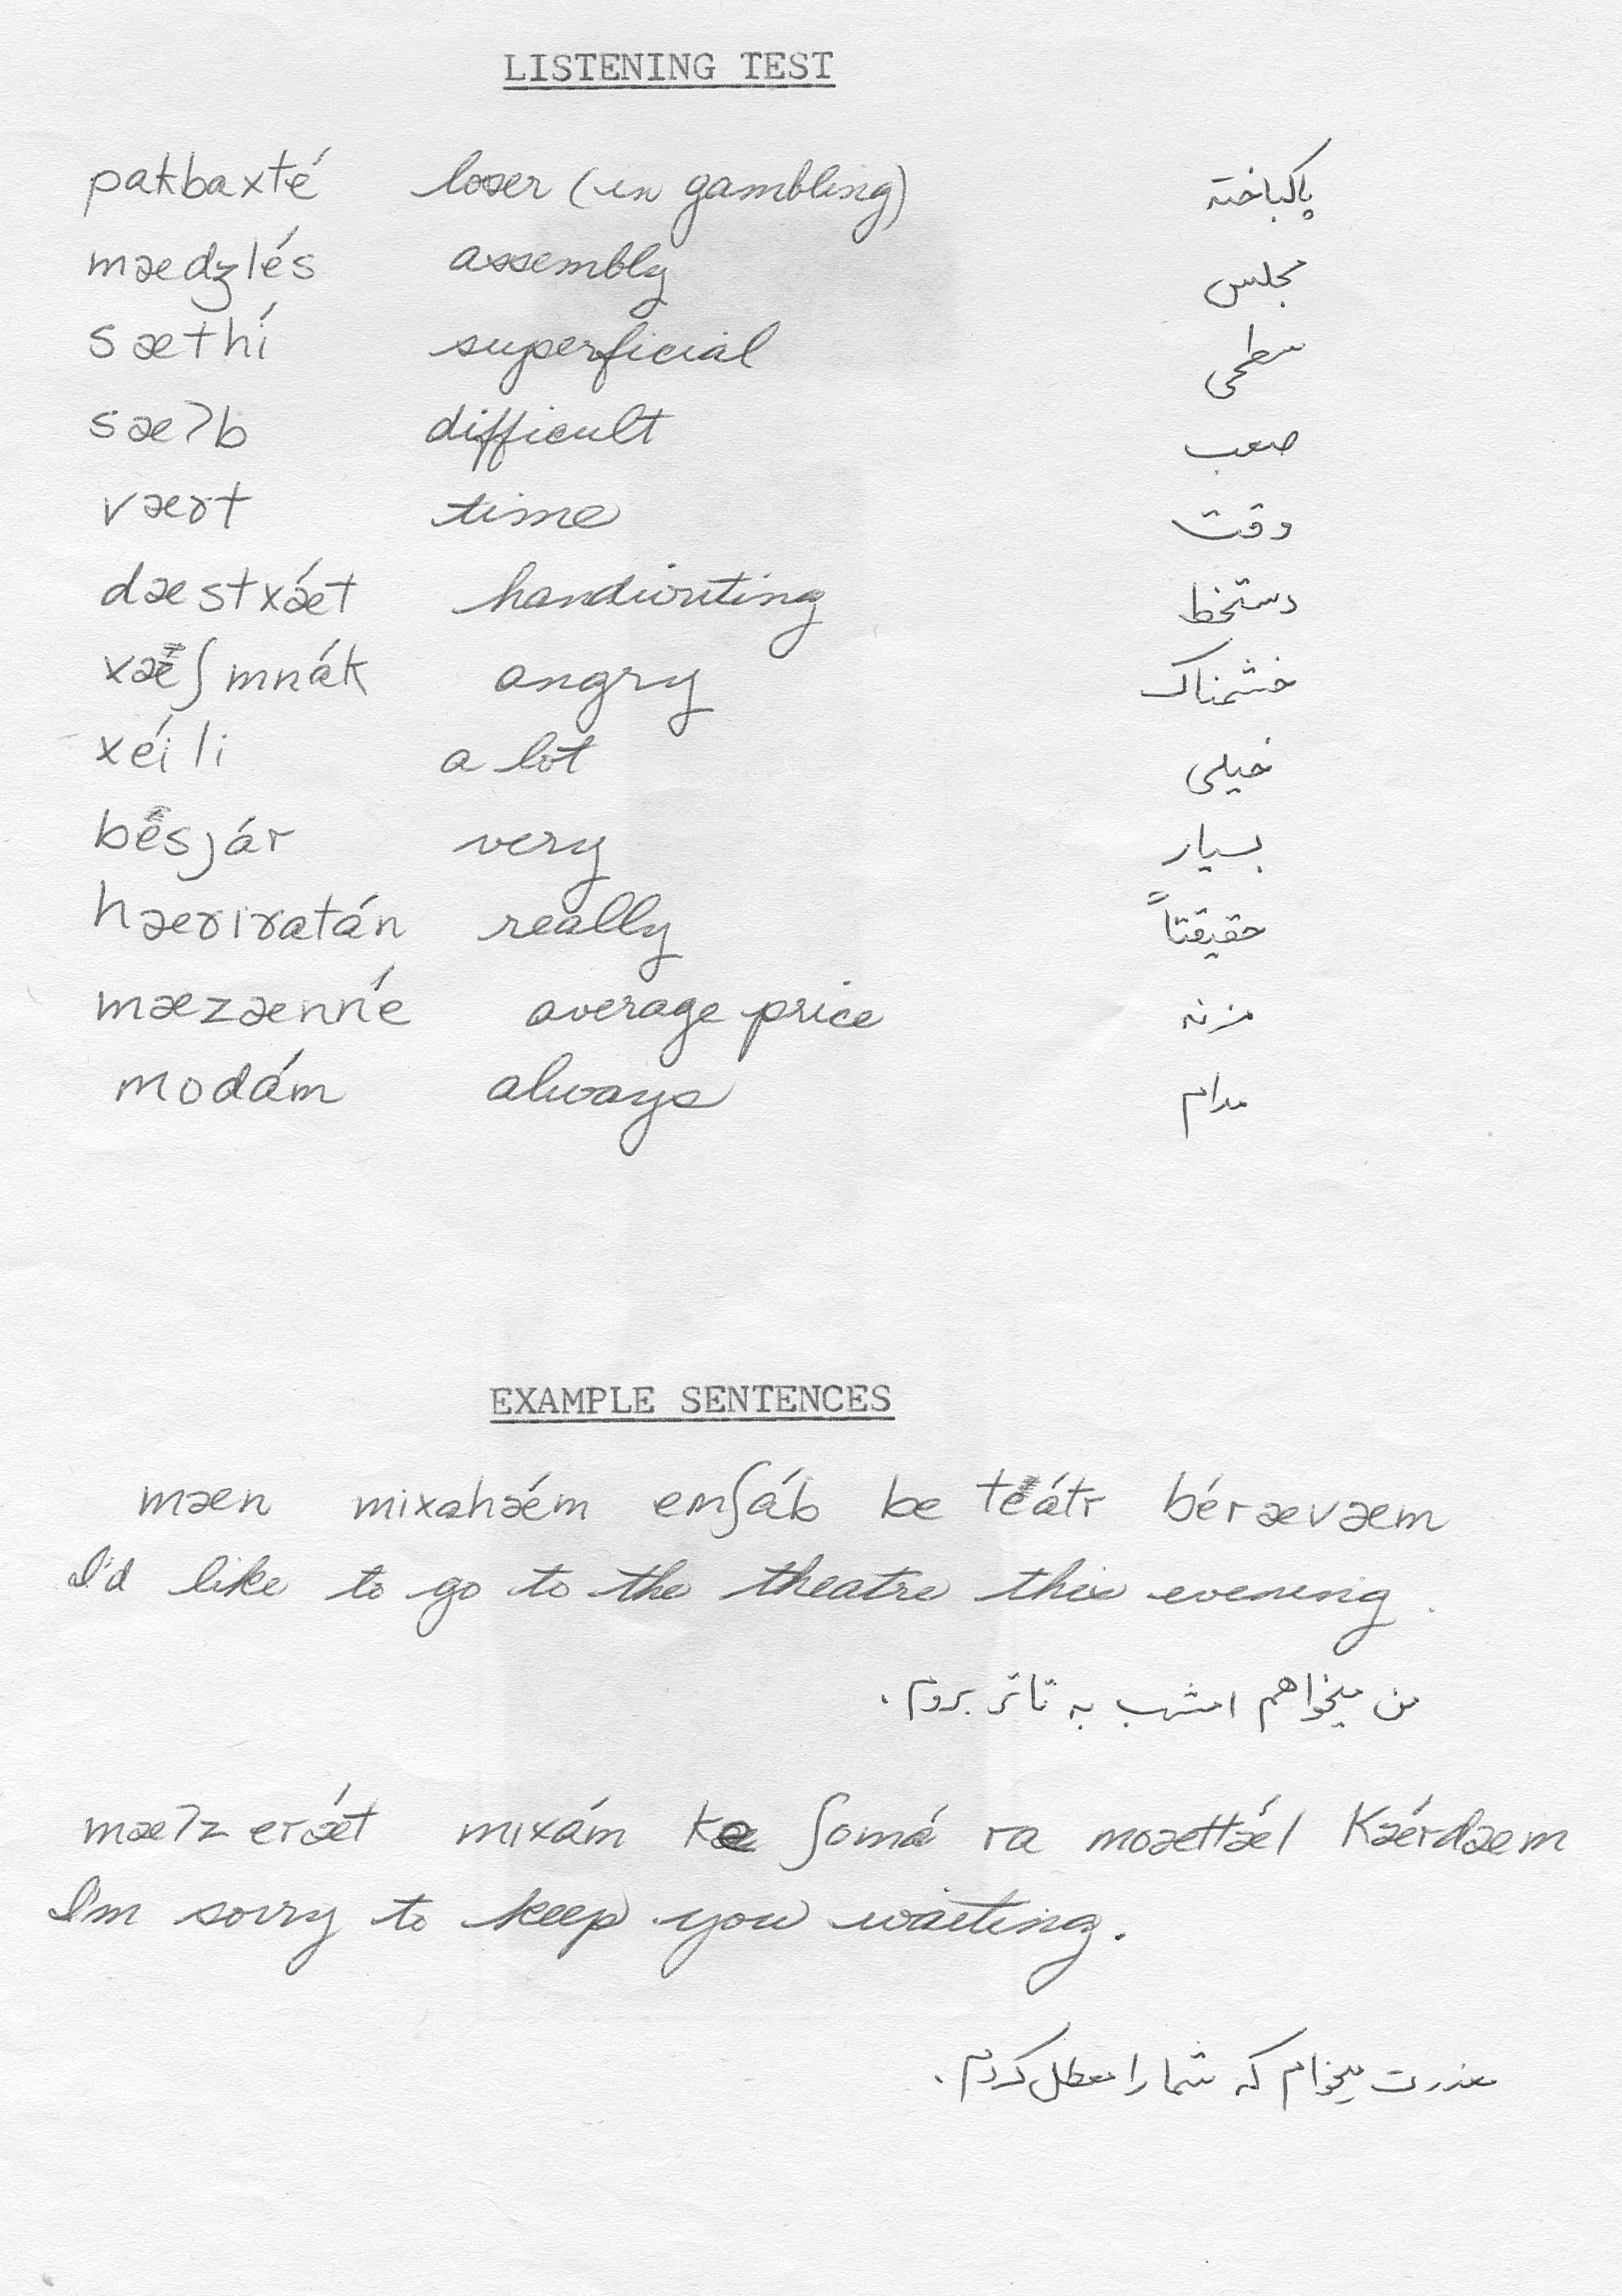 LISTENING TEST
pakbaxté loser (in gambling) پاکباخته
mædʒlés assembly مجلس
sæthí superficial سطحی
sæʔb difficult صعب
væɤt time وقت
dæstxǽt handwriting دستخط
xæʃmnák angry خشمناک
xéili a lot خیلی
besjár very بسیار
hæɤiɤatán really حقیقتاً
mæzænné average price مزنه
modám always مدام
EXAMPLE SENTENCES
mæn mixahǽm emʃáb be teátr bérævæm
I'd like to go to the theatre this evening.
من میخواهم امشب به تاتر بروم.
mæʔzerǽt mixám ke ʃomá ra moættǽl kǽrdæm
I'm sorry to keep you waiting.
معذرت میخوام که شما را معطل کردم.